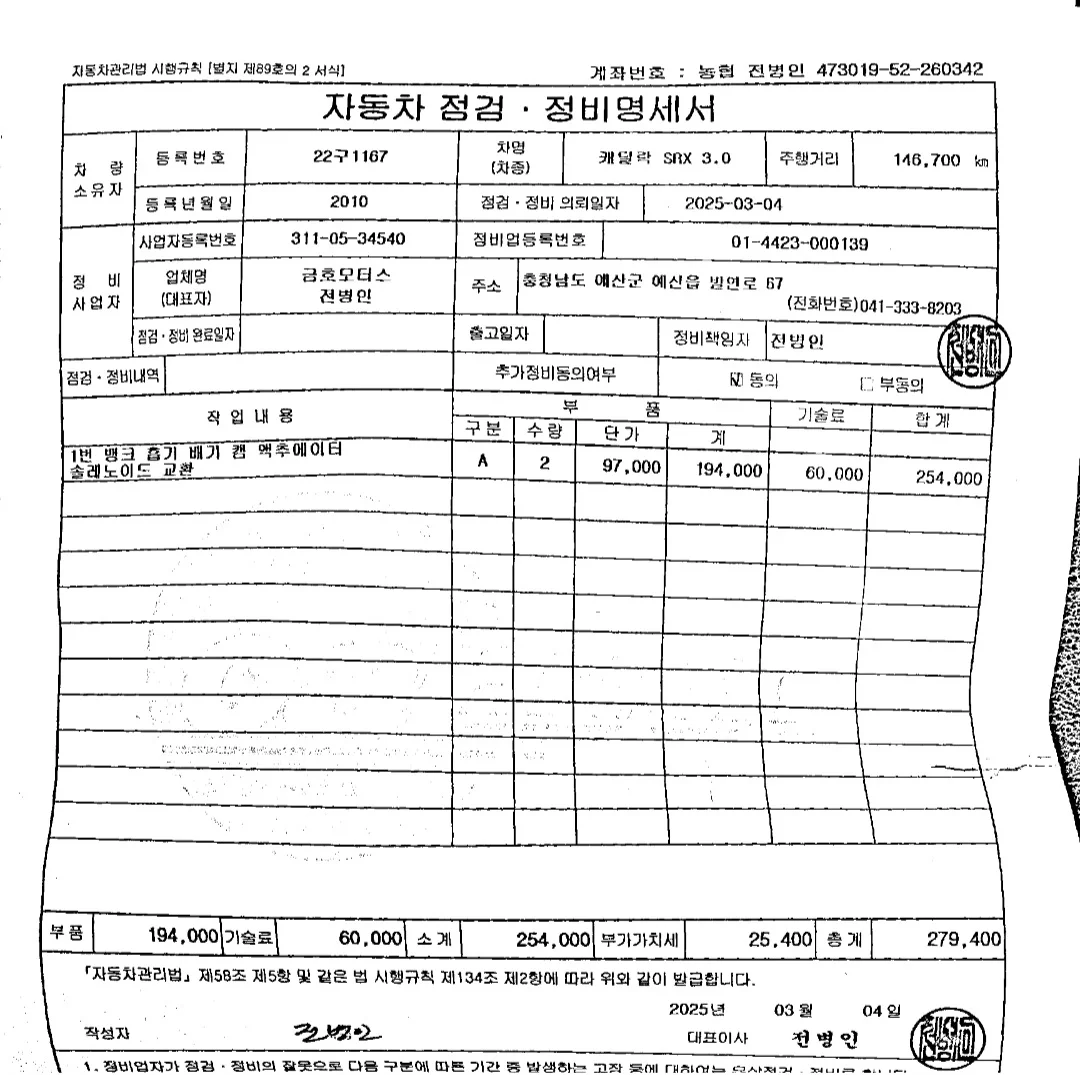 자동차관리법 시행규칙 [별지 제89호의 2 서식]
계좌번호 : 농협 전병인 473019-52-260342
자동차 점검 · 정비명세서
차 량 소유자
등록번호 22구1167 차명 (차종) 캐딜락 SRX 3.0 주행거리 146,700 km
등록년월일 2010 점검 · 정비 의뢰일자 2025-03-04
정 비 사업자
사업자등록번호 311-05-34540 정비업등록번호 01-4423-000139
업체명 (대표자) 금호모터스 전병인 주소 충청남도 예산군 예산읍 벚꽃로 67
(전화번호)041-333-8203
점검 · 정비 완료일자 출고일자 정비책임자 전병인
점검 · 정비내역 추가정비동의여부 ☑ 동의 □ 부동의
작 업 내 용 부 품 기술료 합 계
구 분 수 량 단 가 계
1번 뱅크 흡기 배기 캠 액추에이터
솔레노이드 교환 A 2 97,000 194,000 60,000 254,000
부 품 194,000 기술료 60,000 소 계 254,000 부가가치세 25,400 총 계 279,400
「자동차관리법」 제58조 제5항 및 같은 법 시행규칙 제134조 제2항에 따라 위와 같이 발급합니다.
2025년 03 월 04 일
작성자 전병인 대표이사 전병인
1. 정비업자가 점검 · 정비의 잘못으로 다음 구분에 따른 기간 중 발생하는 고장 등에 대하여는 무상점검 · 정비를 합니다